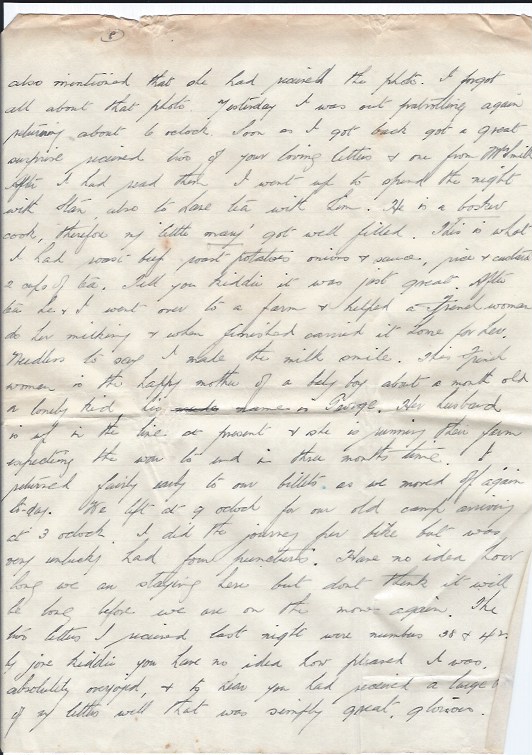 8
also mentioned that she had received the photo. I forgot
all about that photo. Yesterday I was out patrolling again
returning about 6 oclock. Soon as I got back got a great
surprise received two of your loving letters & one from Mrs Smith
After I had read them I went up to spend the night
with Stan, also to have tea with him. He is a bosker
cook, therefore my little mary got well filled. This is what
I had roast beef roast potatoes onions & sauce, rice & custard
2 cups of tea. Tell you kiddie it was just great. After
tea he & I went over to a farm & helped a French woman
do her milking & when finished carried it home for her.
Needless to say I made the milk smile. This French
woman is the happy mother of a baby boy about a month old
a lonely kid, his name is George. Her husband
is up in the line at present & she is running their farm
expecting the war to end in three months time. I
returned fairly early to our billets as we moved off again
to-day. We left at 9 oclock for our old camp arriving
at 3 oclock. I did the journey per bike but was
very unlucky had four punctures. Have no idea how
long we are staying here but dont think it will
be long before we are on the move again. The
two letters I received last night were numbers 38 & 42.
By jove kiddie you have no idea how pleased I was,
absolutely overjoyed, & to hear you had received a large
of my letters well that was simply great, glorious.